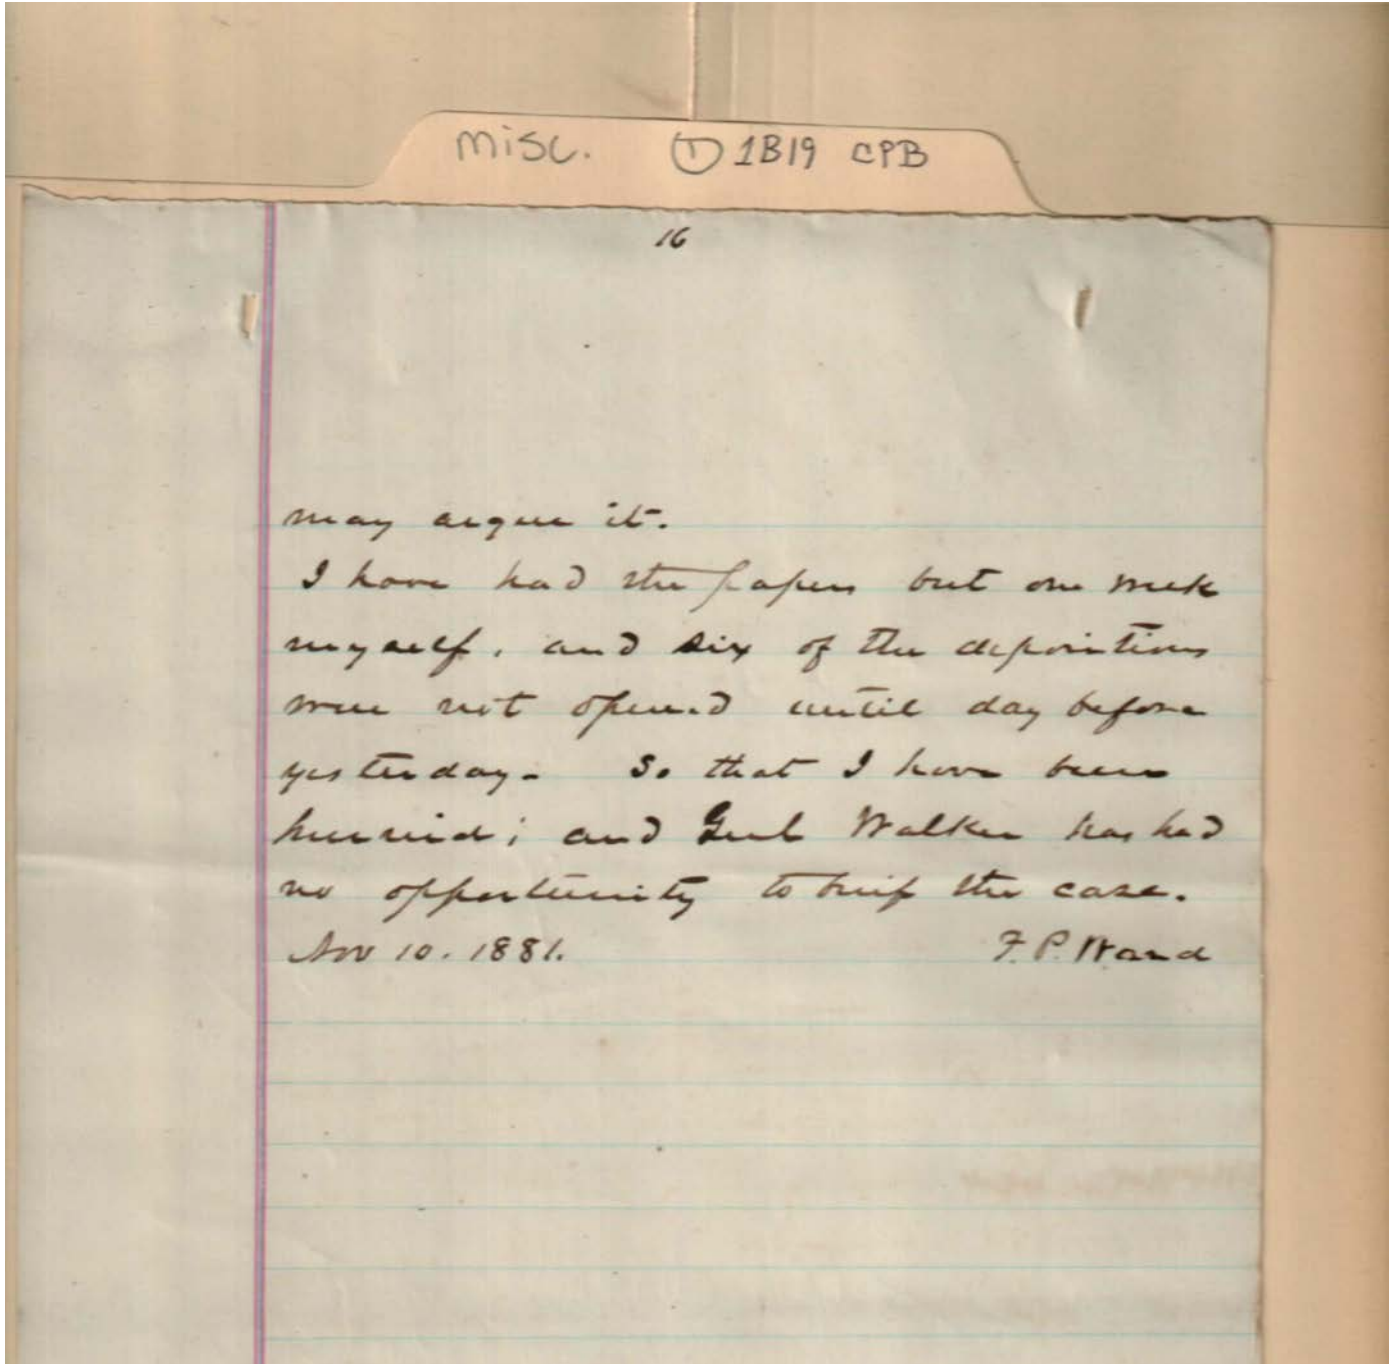 misc. ① 1B19 CPB
16
may argue it.
I have had the papers but one week
myself, and six of the depositions
were not opened until day before
yesterday. So that I have been
hurried; and Genl Walker has had
no opportunity to brief the case.
Nov 10. 1881. F. P. Ward